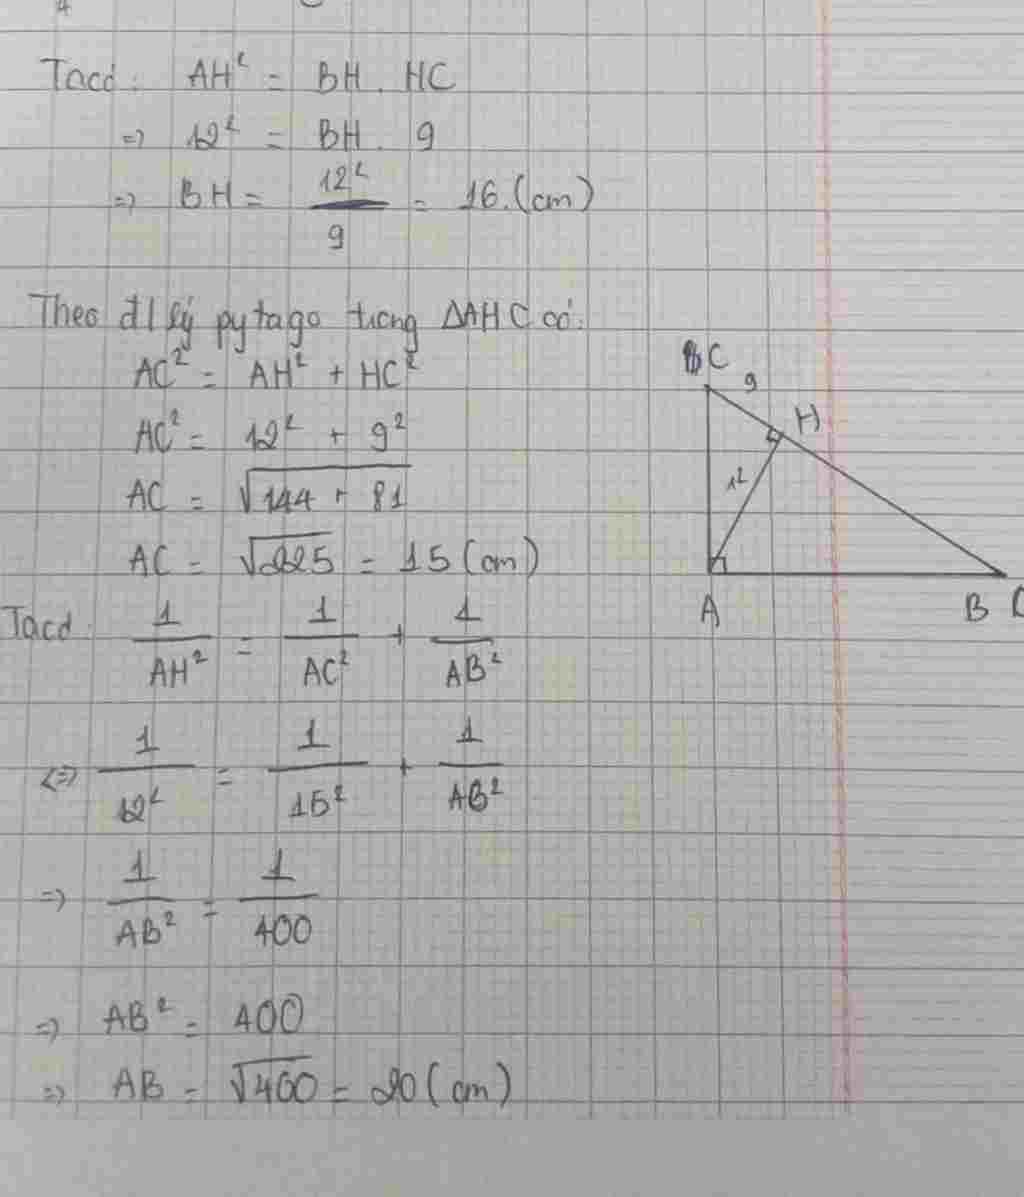 4
Ta có: AH² = BH. HC
=> 12² = BH. 9
=> BH = 12²/9 = 16.(cm)
Theo đ/lý pytago trong ΔAHC có:
AC² = AH² + HC²
AC² = 12² + 9²
AC = √144 + 81
AC = √225 = 15 (cm)
Ta có 1/AH² = 1/AC² + 1/AB²
<=> 1/12² = 1/15² + 1/AB²
=> 1/AB² = 1/400
=> AB² = 400
=> AB = √400 = 20 (cm)
C
9
H
12
A
B C